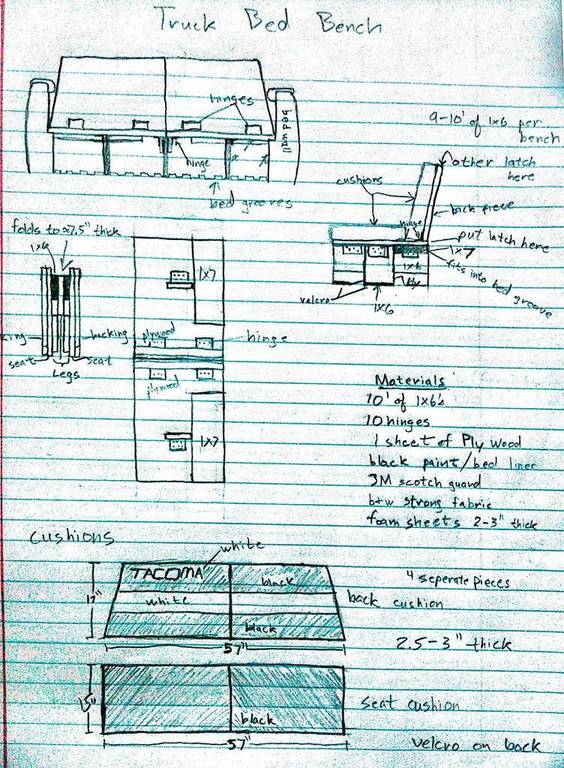 Truck Bed Bench
hinges
bed wall
hinge
bed grooves
9-10' of 1x6 per
bench
other latch
here
cushions
back piece
hinge
put latch here
1x7
fits into bed groove
1x6
velcro
1x6
folds to ≈7.5" thick
1x6
backing
seat
seat
Legs
1x7
plywood
hinge
plywood
1x7
Materials
10' of 1x6's
10 hinges
1 sheet of Ply wood
black paint/bed liner
3M scotch guard
b+w strong fabric
foam sheets 2-3" thick
cushions
white
TACOMA
black
4 seperate pieces
white
back cushion
17"
black
57"
2.5-3" thick
15"
seat cushion
black
57"
velcro on back